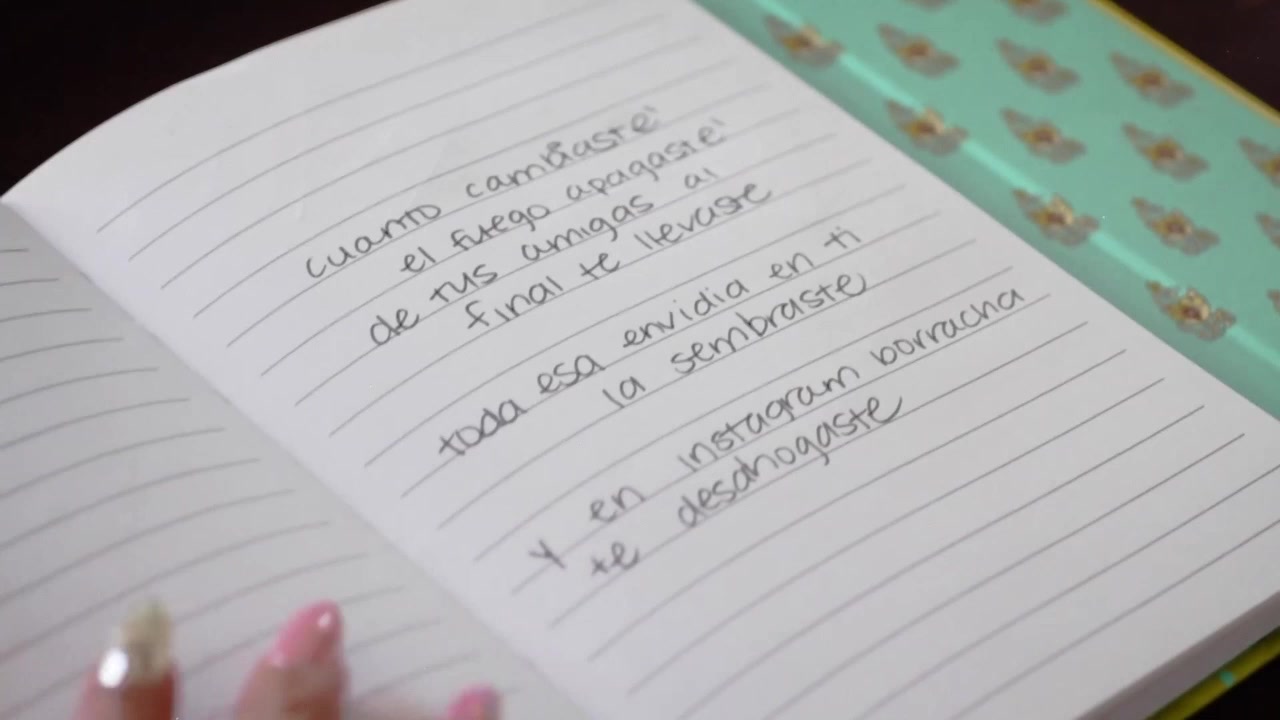 cuanto cambiaste'
el fuego apagaste'
de tus amigas al
final te llevaste
toda esa envidia en ti
la sembraste
y en instagram borracha
te desahogaste